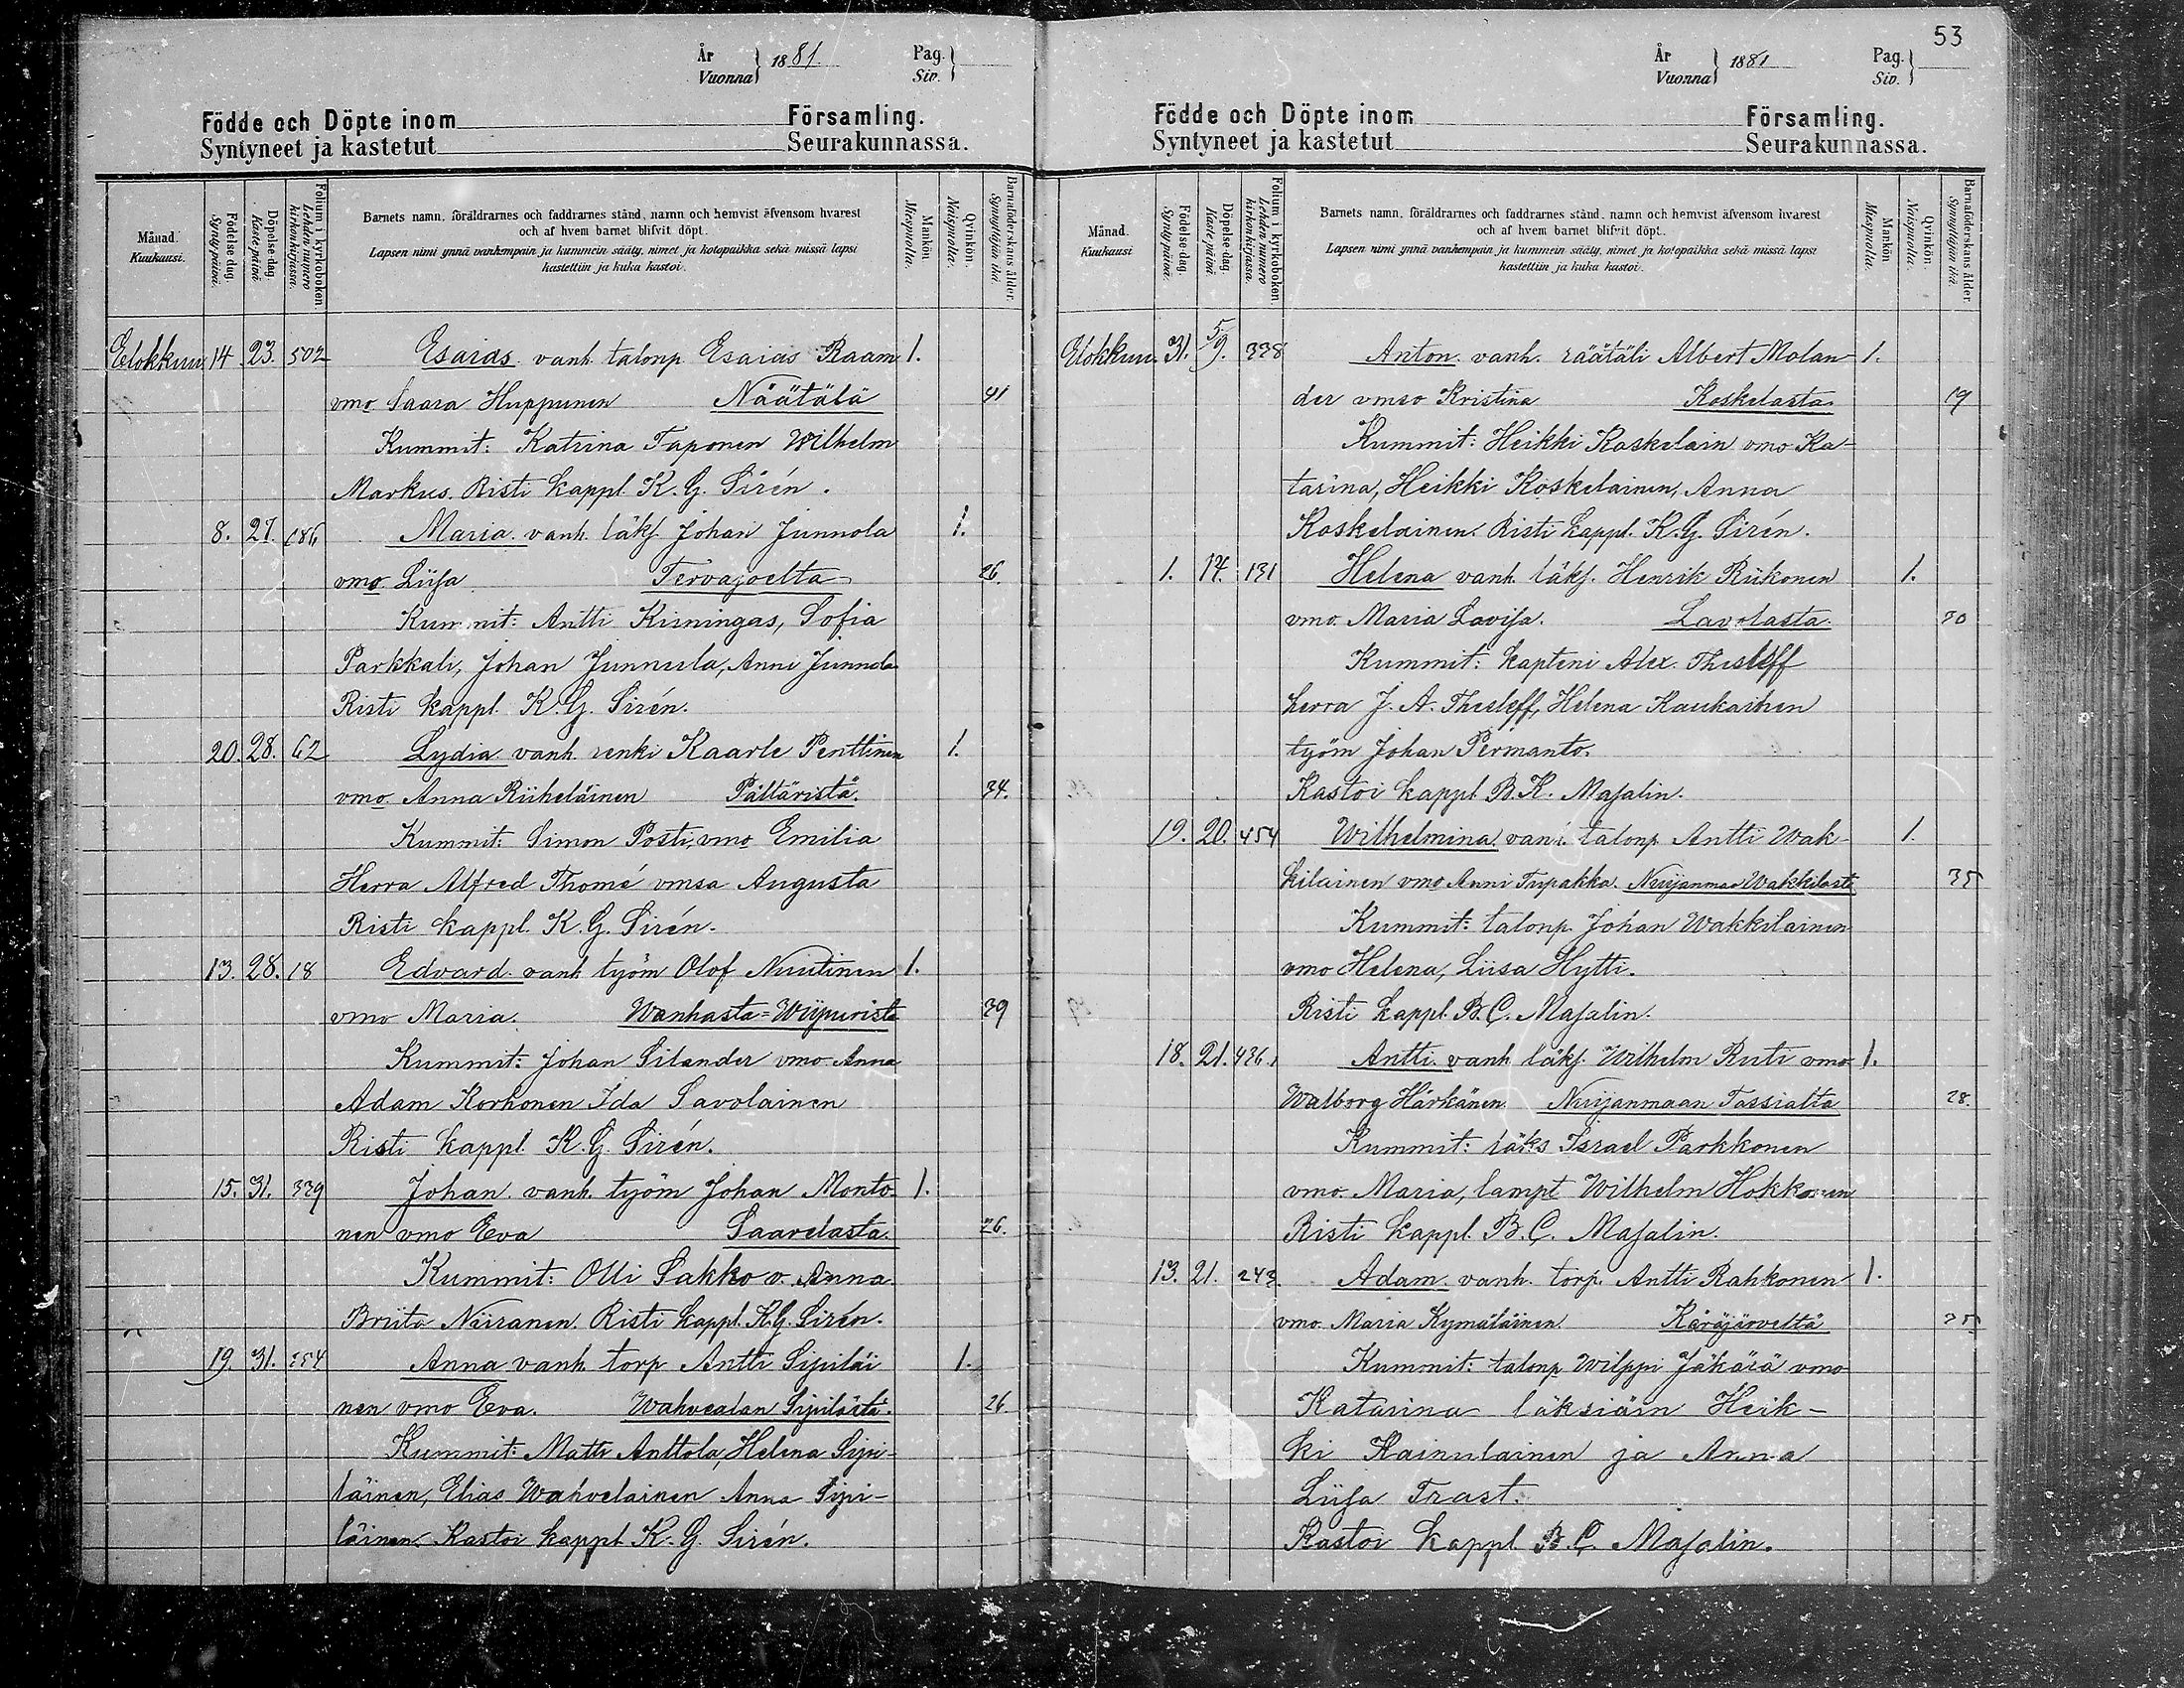 År
Vuonna } 1881. Pag.
Siv. }
Födde och Döpte inom Församling.
Syntyneet ja kastetut Seurakunnassa.
Månad.
Kuukausi.
Födelse dag.
Synty päivä.
Döpelse dag.
Kaste päivä.
Folium i kyrkoboken.
Lehden numero kirkonkirjassa.
Barnets namn, föräldrarnes och faddrarnes stånd, namn och hemvist äfvensom hvarest
och af hvem barnet blifvit döpt.
Lapsen nimi ynnä vanhempain ja kummein sääty, nimet ja kotopaikka sekä missä lapsi
kastettiin ja kuka kastoi.
Mankön.
Miespuolia.
Qvinkön.
Naispuolia.
Barnaföderskans ålder.
Synnyttäjän ikä.
Elokkuu 14 23. 502 Esaias vanh. talonp Esaias Raam 1.
vmo Saara Huppunen Näätälä 41
Kummit: Katrina Taponen Wilhelm
Markus. Risti kappl. K. G. Sirén.
8. 27. 186 Maria. vanh. läks. Johan Junnola 1.
vmo Liisa Tervajoelta 26.
Kummit: Antti Kirningas, Sofia
Parkkali, Johan Junnula, Anni Junnola
Risti kappl. K. G. Sirén.
20. 28. 62 Lydia vanh. renki Kaarle Penttinen 1.
vmo. Anna Riiheläinen Pältäristä. 34.
Kummit: Simon Posti, vmo Emilia
Herra Alfred Thomé vmsa Augusta
Risti kappl. K. G. Sirén.
13. 28. 18 Edvard. vanh. työm Olof Nuutinen 1.
vmo Maria. Wanhasta=Wiipurista 39
Kummit: Johan Silander vmo Anna
Adam Korhonen Ida Savolainen
Risti kappl. K. G. Sirén.
15. 31. 339 Johan. vanh. työm Johan Monto 1.
nen vmo Eva Saarelasta. 26.
Kummit: Olli Sakko v. Anna
Briita Niiranen. Risti kappl. K. G. Sirén.
19. 31. 254 Anna vanh. torp Antti Sipiläi 1.
nen vmo Eva. Wahvealan Sipilästä. 26.
Kummit: Matti Anttola, Helena Sipi-
läinen, Elias Wahvelainen Anna Sipi-
läinen. Kastoi kappl. K. G. Sirén.
53
År
Vuonna } 1881 Pag.
Siv. }
Födde och Döpte inom Församling.
Syntyneet ja kastetut Seurakunnassa.
Månad.
Kuukausi
Födelse dag.
Synty päivä.
Döpelse dag.
Kaste päivä.
Folium i kyrkoboken.
Lehden numero kirkonkirjassa.
Barnets namn, föräldrarnes och faddrarnes stånd, namn och hemvist äfvensom hvarest
och af hvem barnet blifvit döpt.
Lapsen nimi ynnä vanhempain ja kummein sääty, nimet ja kotopaikka sekä missä lapsi
kastettiin ja kuka kastoi.
Mankön
Miespuolia.
Qvinkön.
Naispuolia.
Barnaföderskans ålder.
Synnyttäjän ikä.
Elokkuu 31. 5/9. 338 Anton. vanh. räätäli Albert Molan- 1.
der vmso Kristina Koskelasta 19
Kummit: Heikki Koskelain vmo Ka-
tarina, Heikki Koskelainen, Anna
Koskelainen. Risti kappl. K. G. Sirén.
1. 14. 131 Helena vanh. läks. Henrik Riikonen 1.
vmo. Maria Lavisa. Lavolasta.
Kummit: kapteni Alex. Thesleff
herra J. A. Thesleff, Helena Kaukaihen
työm Johan Permanto.
Kastoi kappl B. K. Masalin.
19. 20. 454 Wilhelmina vanh. talonp Antti Wak- 1.
kilainen vmo Anni Tupakka. Nuijanmaa Wakkilasta 35
Kummit: talonp. Johan Wakkilainen
vmo Helena, Liisa Hytti.
Risti kappl. B. C. Masalin.
18. 21. 436. Antti. vanh läks. Wilhelm Ruti vmo 1.
Walborg Härkänen. Nuijanmaan Tassialta 28.
Kummit: läks Israel Parkkonen
vmo. Maria, lampt Wilhelm Hokkanen
Risti kappl. B. C. Masalin.
13. 21. 243. Adam. vanh. torp. Antti Rahkonen 1.
vmo. Maria Kymäläinen. Käräjärveltä 35.
Kummit: talonp Wilppi Jäkärä vmo
Katarina läksiäin Heik-
ki Kainulainen ja Anna
Liisa Trast.
Kastoi kappl B. C. Masalin.